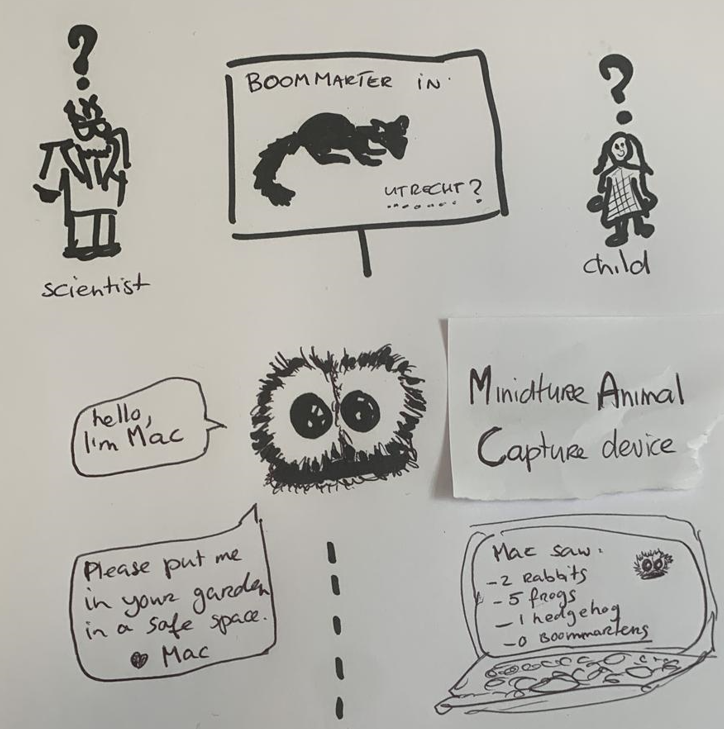 ?
BOOMMARTER IN
UTRECHT?
?
scientist
child
hello,
I'm Mac
Miniature Animal
Capture device
Please put me
in your garden
in a safe space.
♥ Mac
Mac saw:
-2 Rabbits
-5 frogs
-1 hedgehog
-0 Boommartens